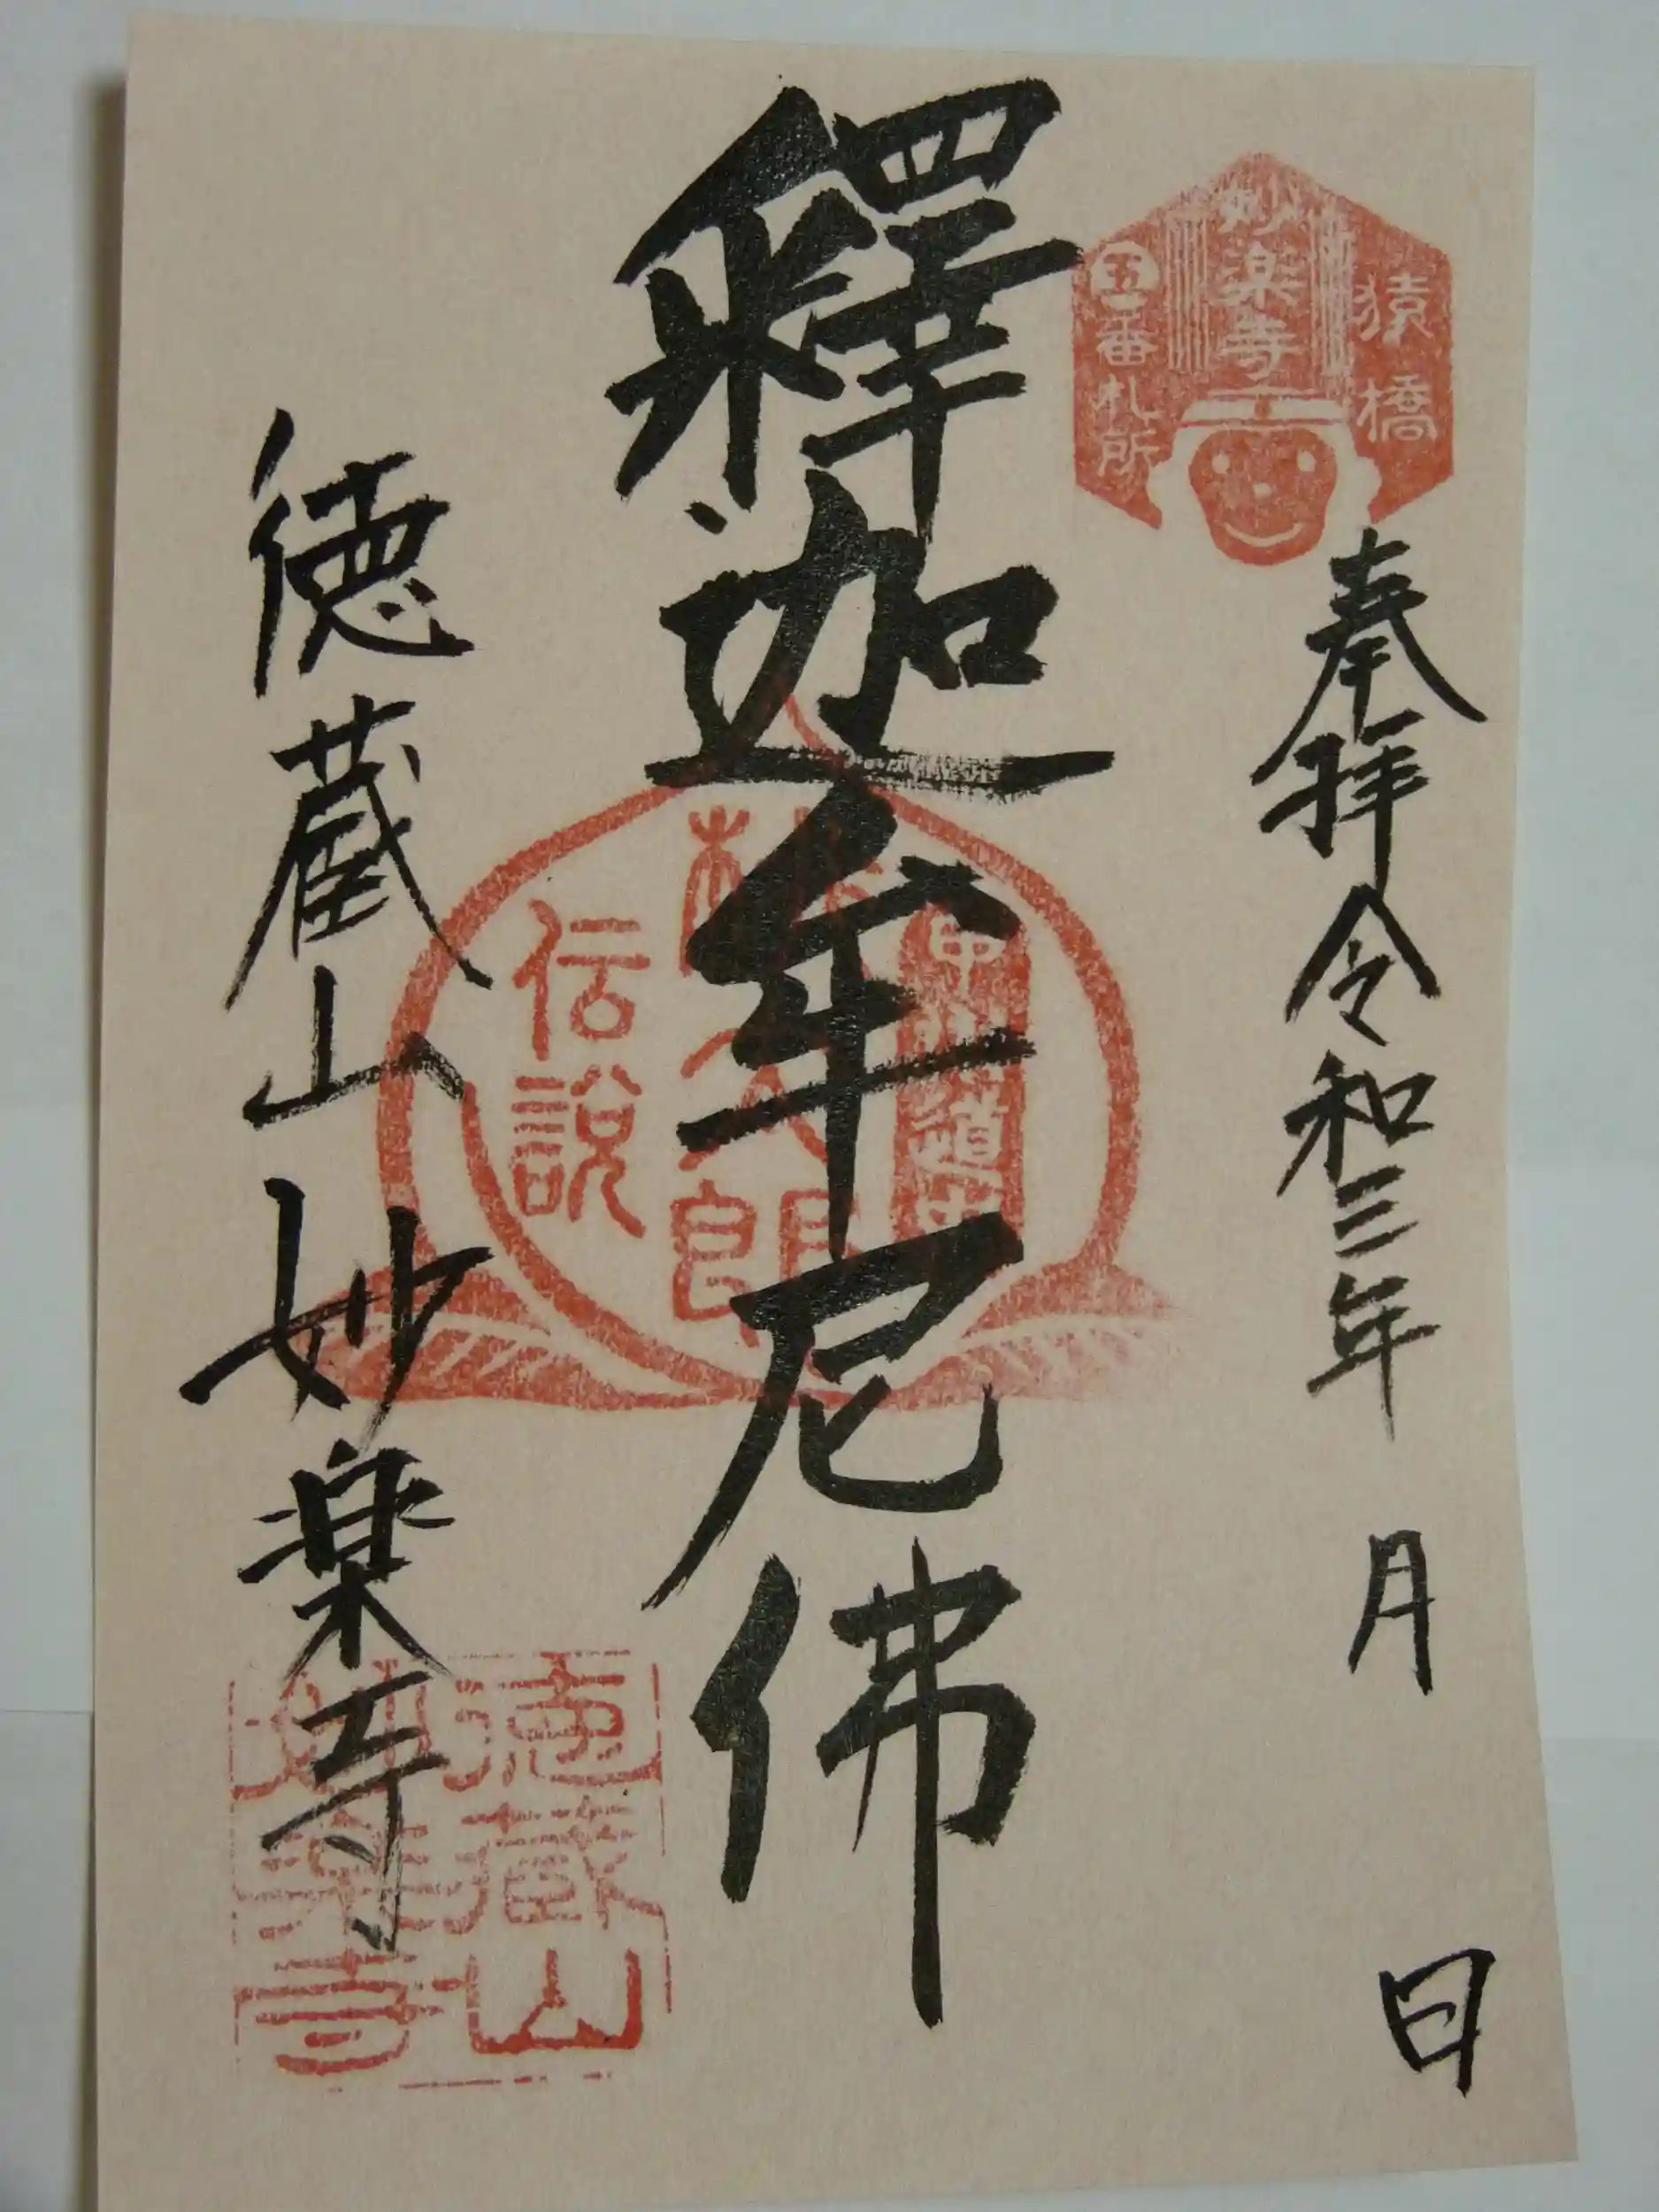 猿橋
妙楽寺
五番札所
奉拝令和三年 月 日
釋迦牟尼佛
甲州道中
桃太郎
伝説
徳蔵山妙楽寺
徳蔵山
妙楽寺